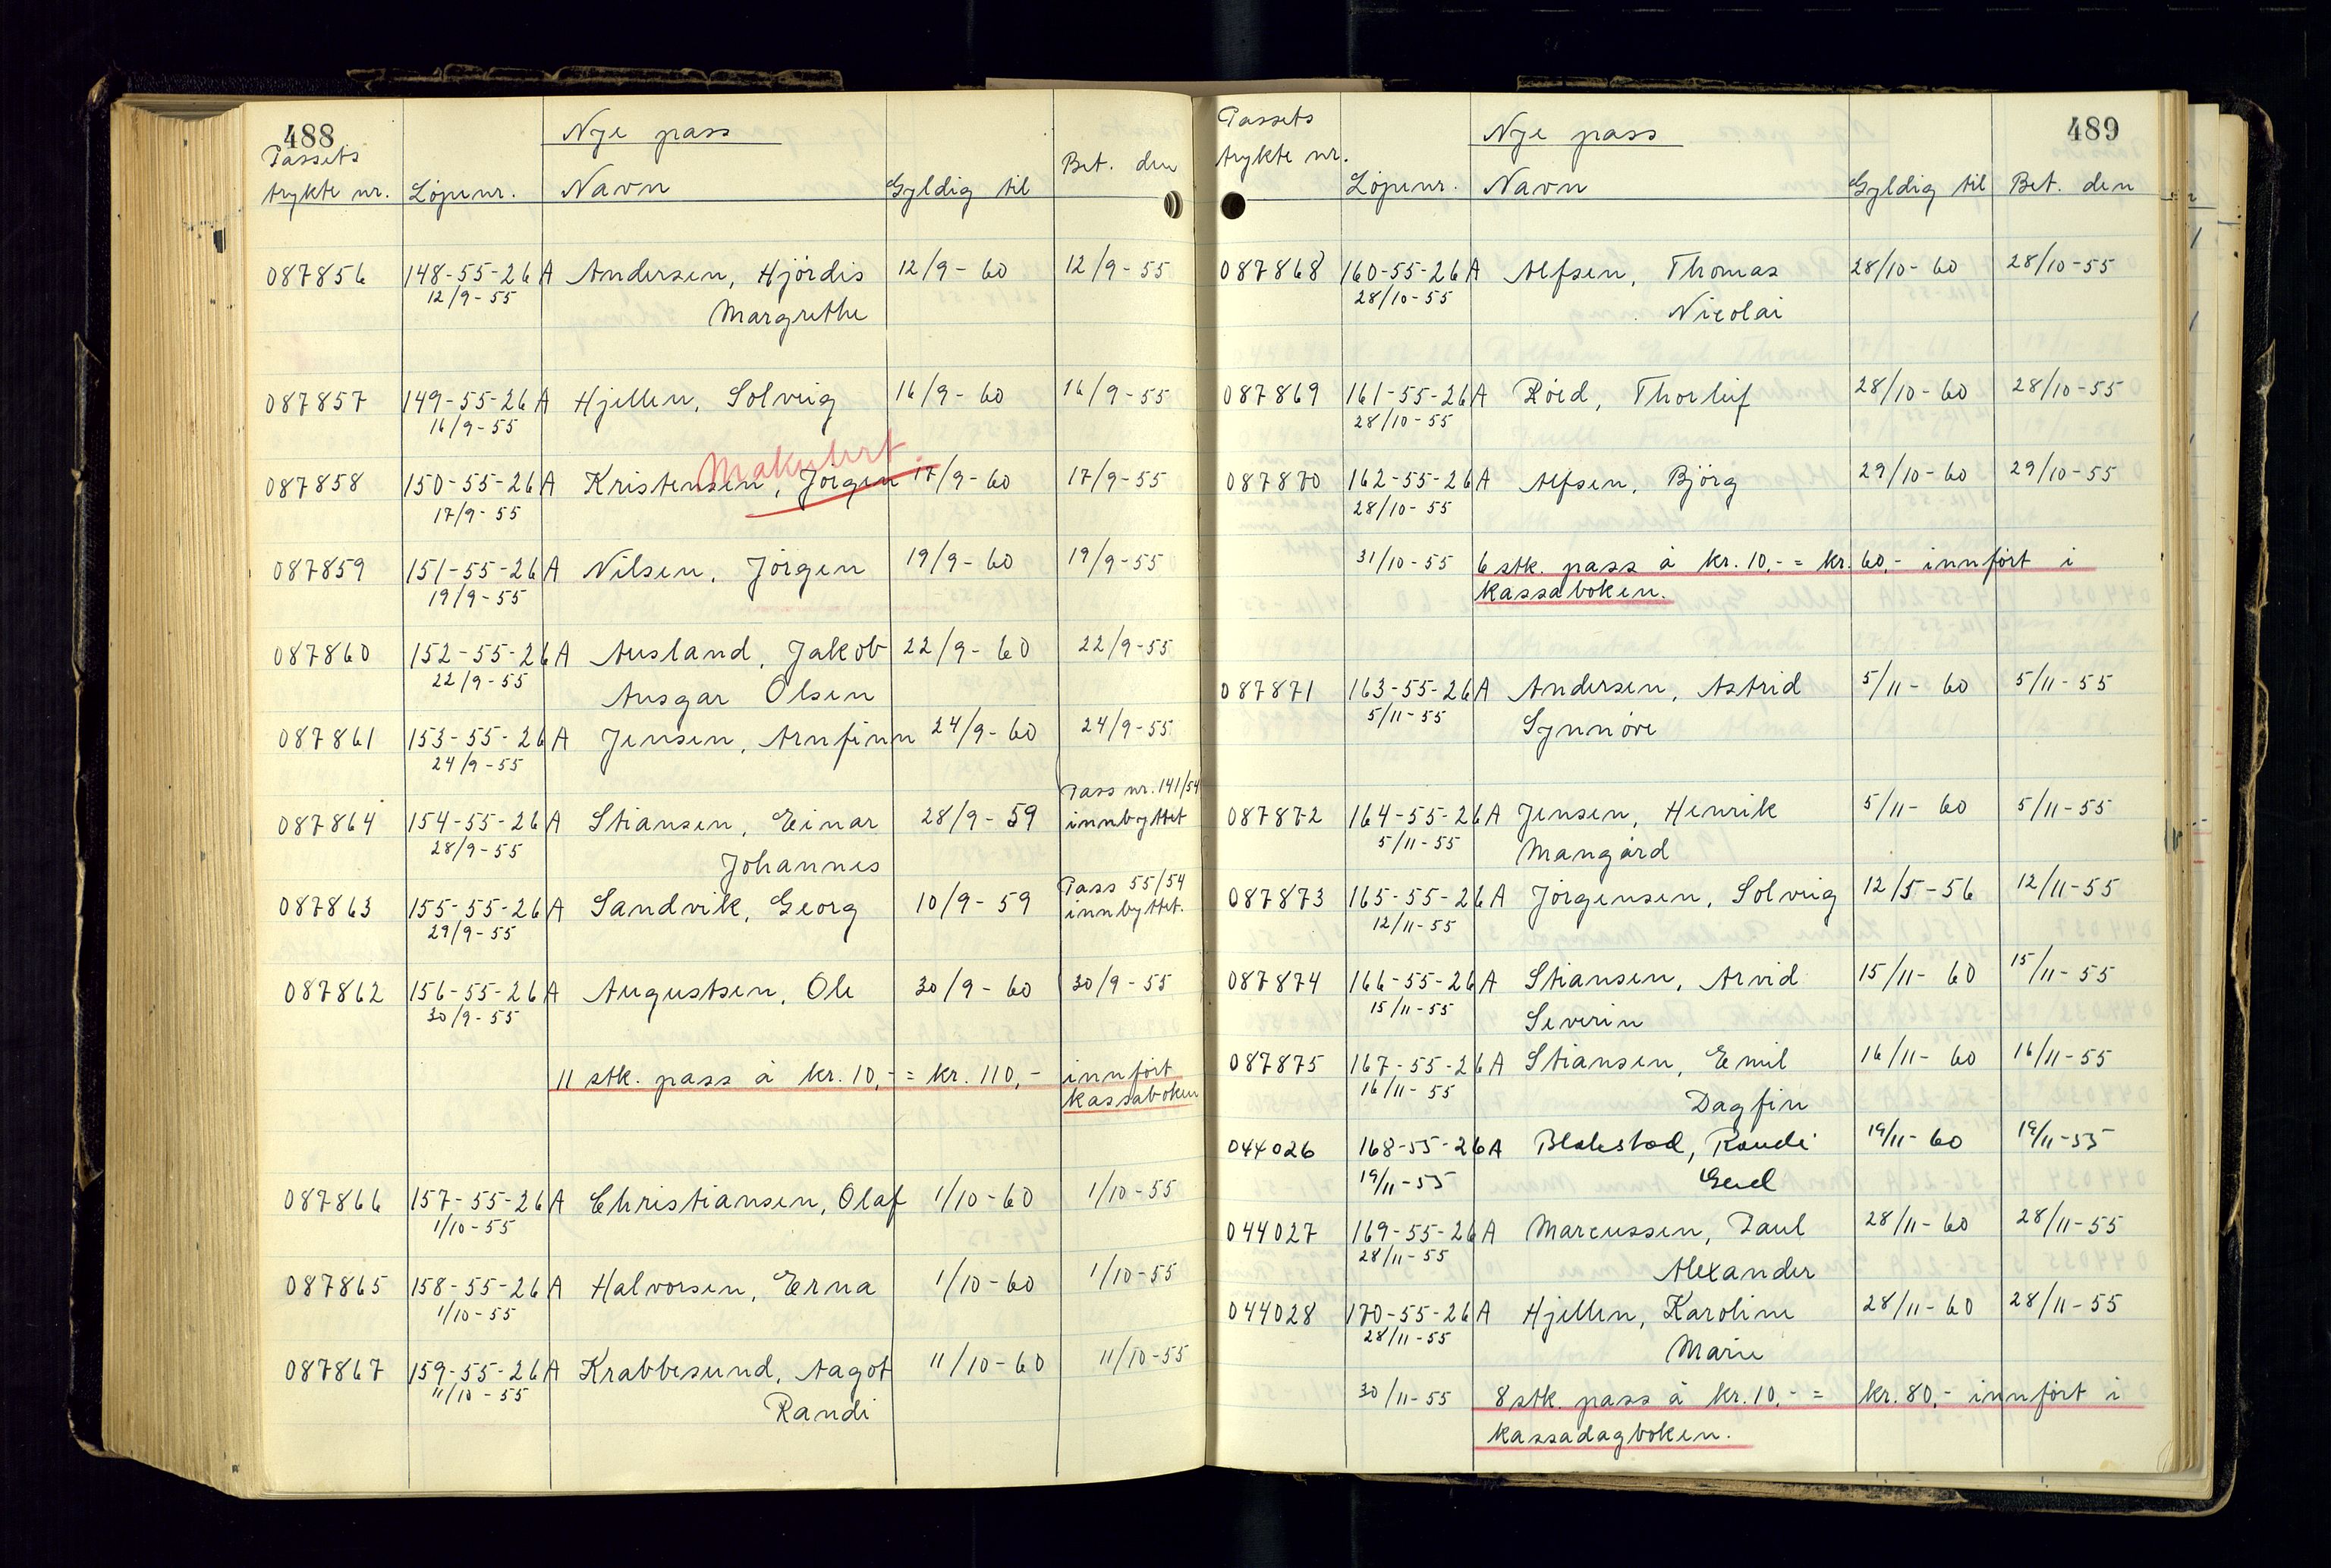 488
Nye pass
Passets
trykte nr. Löpenr. Navn Gyldig til Bet. den
087856 148-55-26A Andersen, Hjördis 12/9-60 12/9-55
12/9-55 Margrethe
087857 149-55-26A Hjellen, Solveig 16/9-60 16/9-55
16/9-55
Makulert.
087858 150-55-26A Kristensen, Jörgen 17/9-60 17/9-55
17/9-55
087859 151-55-26A Nilsen, Jörgen 19/9-60 19/9-55
19/9-55
087860 152-55-26A Ausland, Jakob 22/9-60 22/9-55
22/9-55 Ansgar Olsen
087861 153-55-26A Jensen, Arnfinn 24/9-60 24/9-55
24/9-55
Pass nr. 141/54
087864 154-55-26A Stiansen, Einar 28/9-59 innbyttet
28/9-55 Johannes
Pass 55/54
087863 155-55-26A Sandvik, Georg 10/9-59 innbyttet.
29/9-55
087862 156-55-26A Augustsen, Ole 30/9-60 30/9-55
30/9-55
11 stk. pass à kr. 10,- = kr. 110,- innfört
kassaboken
087866 157-55-26A Christiansen, Olaf 1/10-60 1/10-55
1/10-55
087865 158-55-26A Halvorsen, Erna 1/10-60 1/10-55
1/10-55
087867 159-55-26A Krabbesund, Aagot 11/10-60 11/10-55
11/10-55 Randi
489
Passets Nye pass
trykte nr. Löpenr. Navn Gyldig til Bet. den
087868 160-55-26A Alfsen, Thomas 28/10-60 28/10-55
28/10-55 Nicolai
087869 161-55-26A Röed, Thorleif 28/10-60 28/10-55
28/10-55
087870 162-55-26A Alfsen, Björg 29/10-60 29/10-55
28/10-55
31/10-55 6 stk. pass à kr. 10,- = kr. 60,- innfört i
kassaboken.
087871 163-55-26A Andersen, Astrid 5/11-60 5/11-55
5/11-55 Synnöve
087872 164-55-26A Jensen, Henrik 5/11-60 5/11-55
5/11-55 Mangård
087873 165-55-26A Jörgensen, Solveig 12/5-56 12/11-55
12/11-55
087874 166-55-26A Stiansen, Arvid 15/11-60 15/11-55
15/11-55 Severin
087875 167-55-26A Stiansen, Emil 16/11-60 16/11-55
16/11-55 Dagfin
044026 168-55-26A Blakstad, Randi 19/11-60 19/11-55
19/11-55
044027 169-55-26A Marcussen, Paul 28/11-60 28/11-55
28/11-55 Alexander
044028 170-55-26A Hjellen, Karoline 28/11-60 28/11-55
28/11-55 Marie
30/11-55 8 stk. pass à kr. 10,- = kr. 80,- innfört i
kassadagboken.